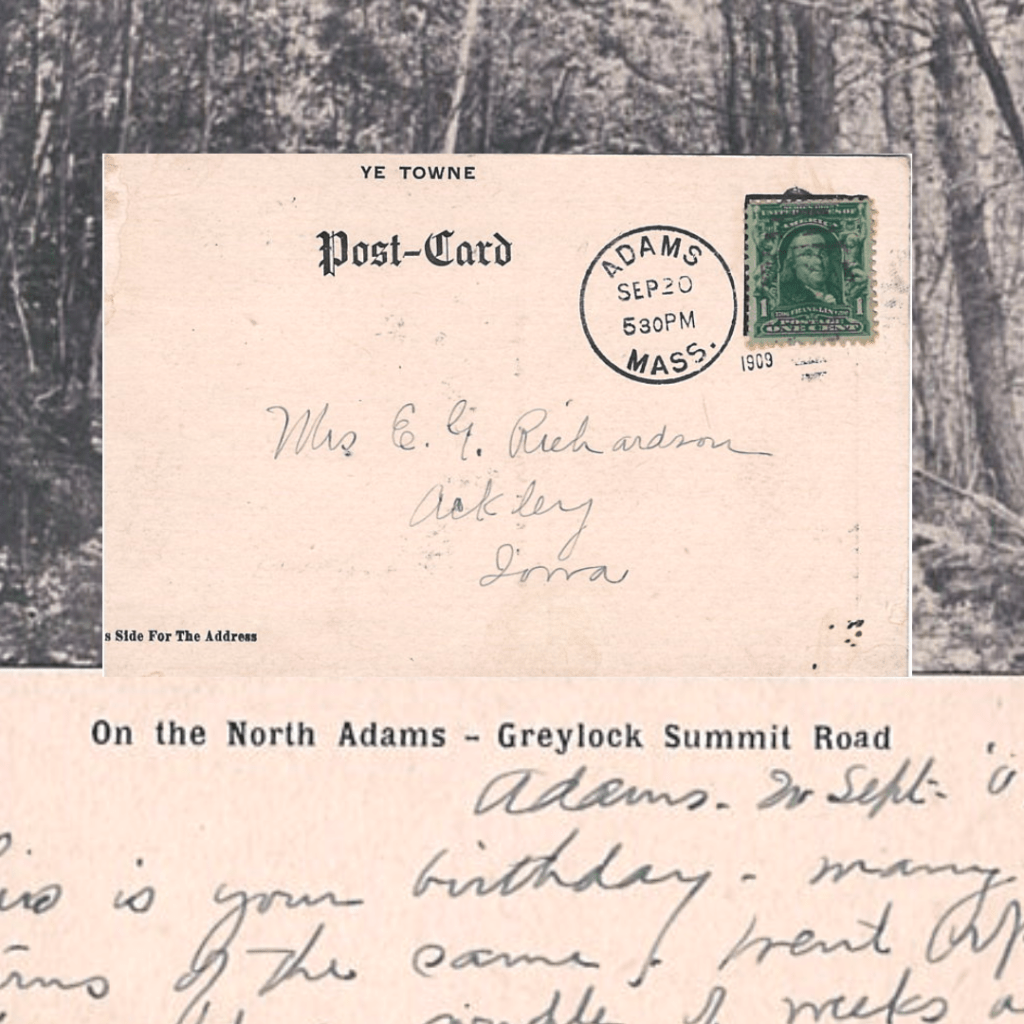 YE TOWNE
Post-Card
ADAMS
SEP 20
530PM
MASS.
1909
UNITED STATES OF
AMERICA
1 FRANKLIN 1
POSTAGE
ONE CENT
Mrs E. G. Richardson
Ackley
Iowa
s Side For The Address
On the North Adams – Greylock Summit Road
Adams. 20 Sept. '0
his is your birthday - many
rns of the same. Went up
middle of weeks a